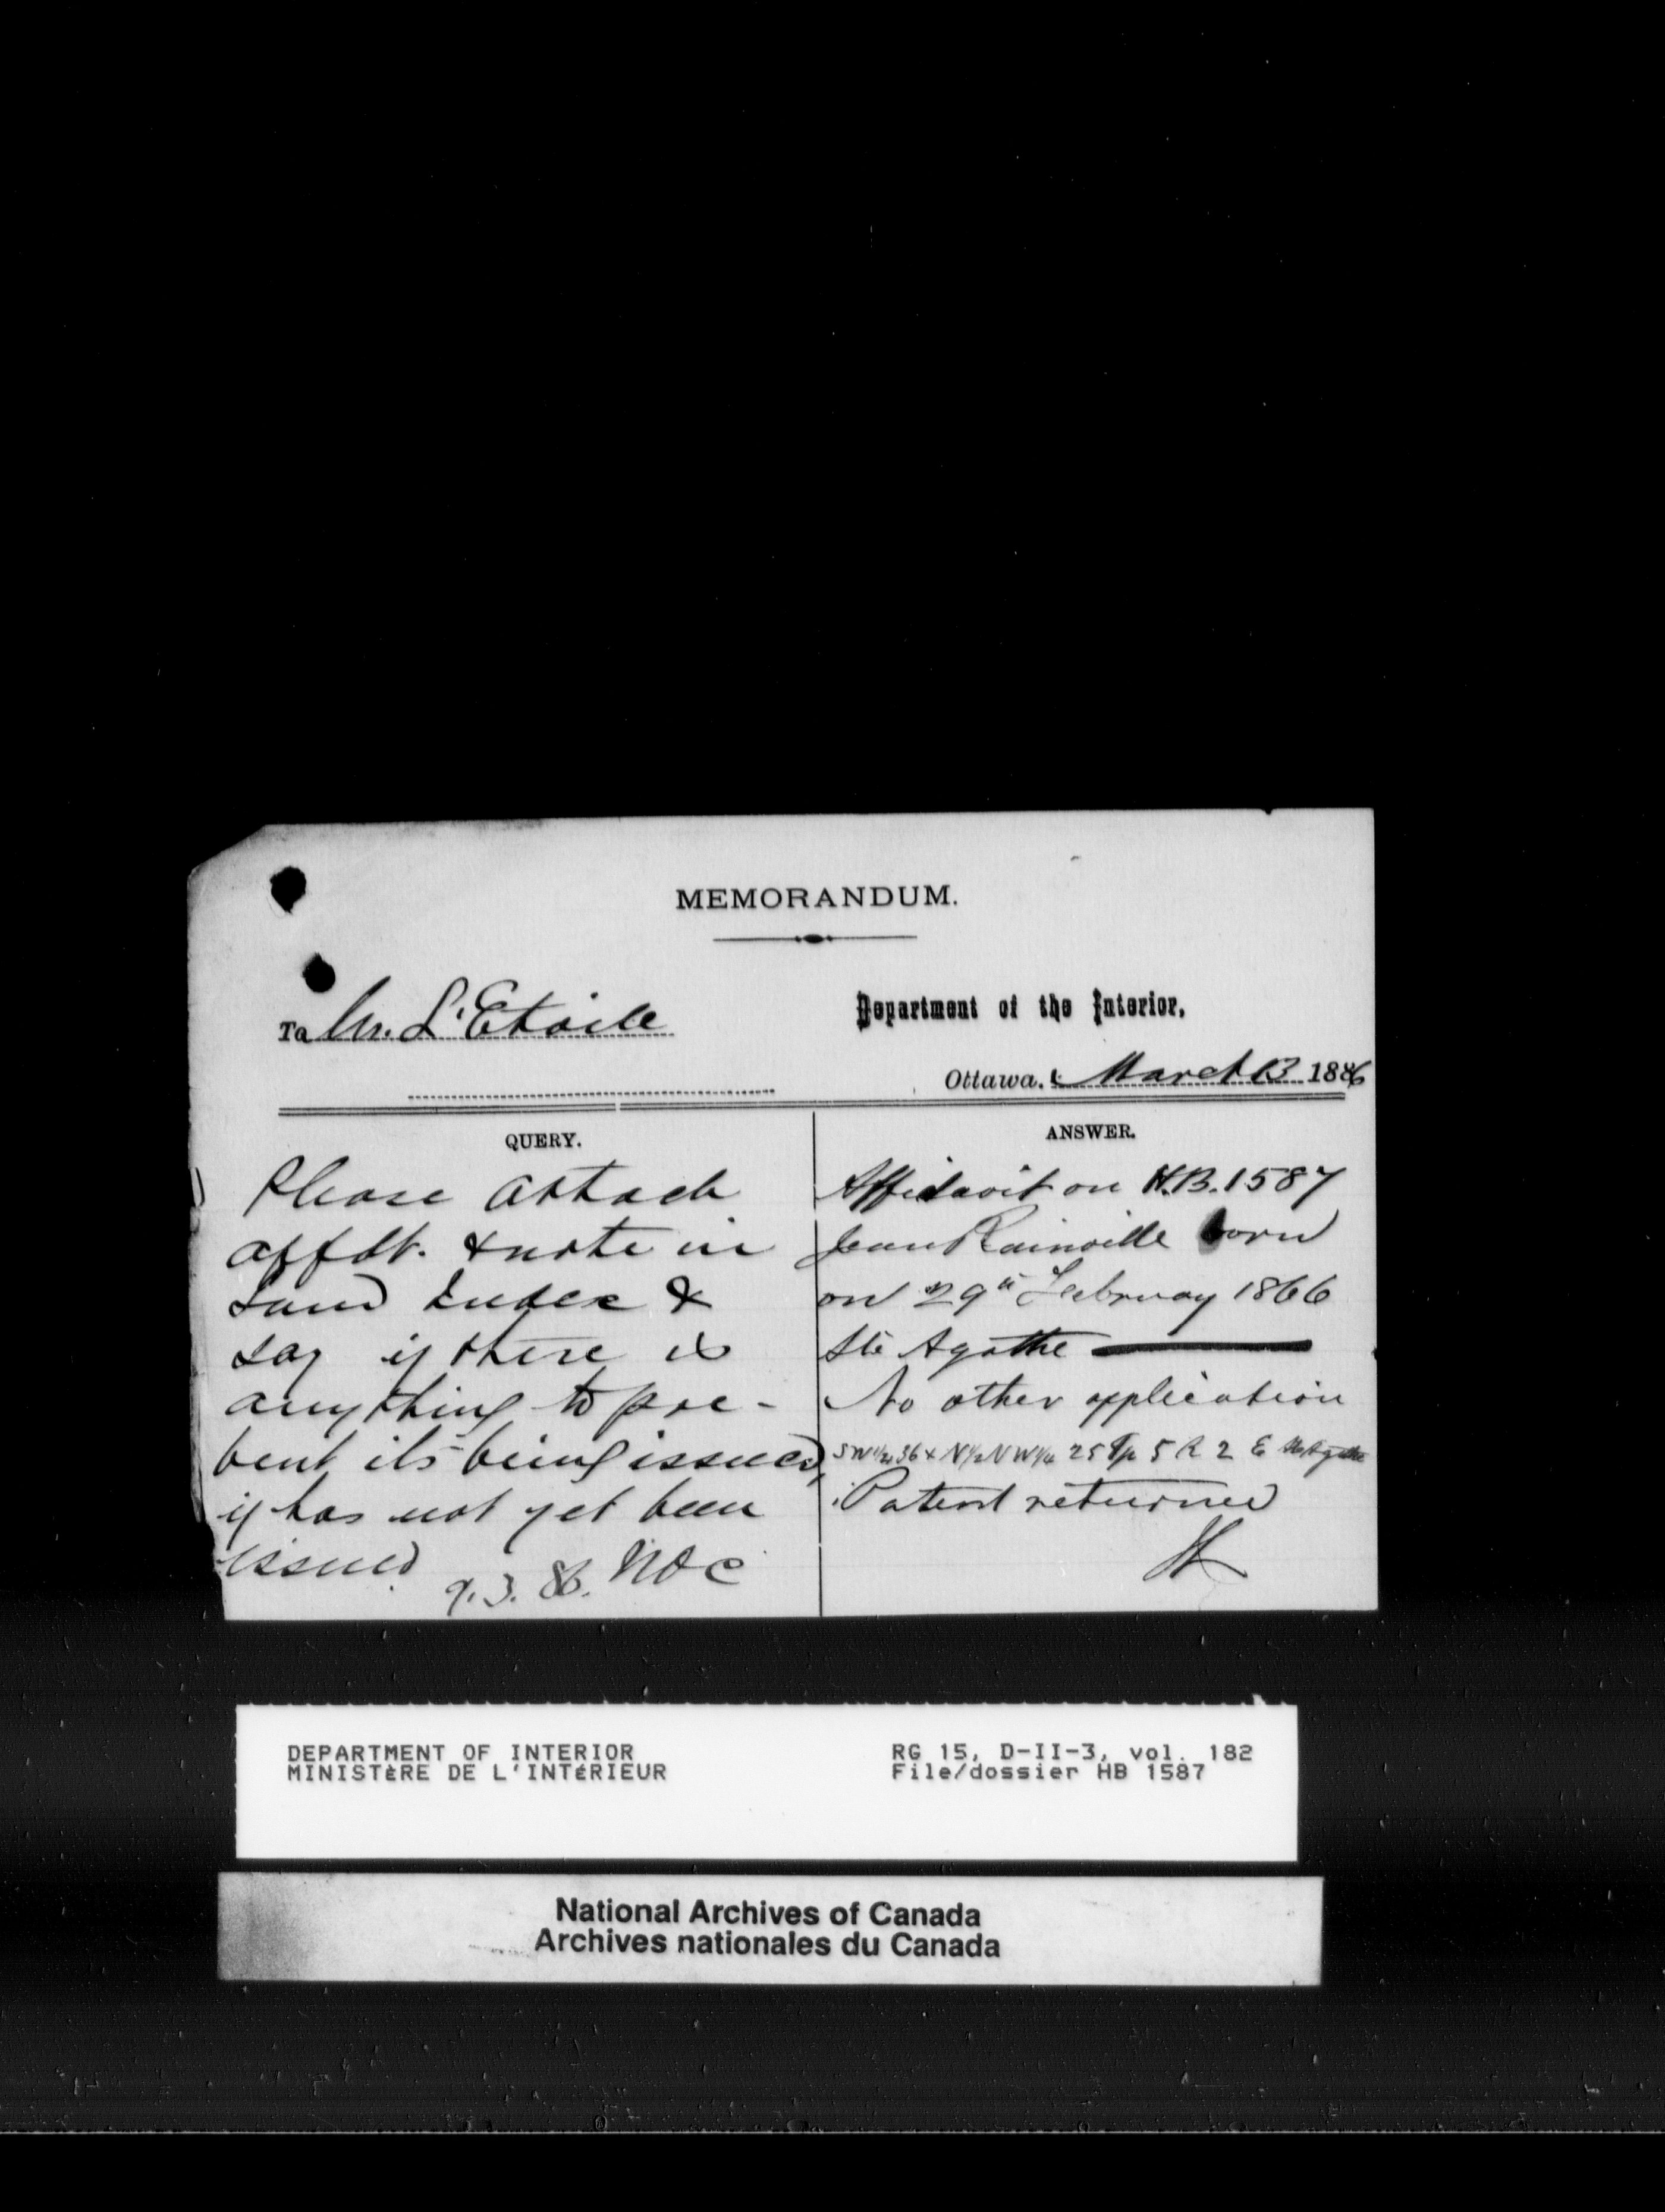 MEMORANDUM.
To Mr. L'Etoile
Department of the Interior,
Ottawa, March 13 1886
QUERY.
Please attach
affdt. & note in
Land Index &
say if there is
anything to pre-
vent its being issued,
if has not yet been
issued
9.3.86.
ANSWER.
Affidavit on H.B. 1587
Jean Rainville born
on 29th February 1866
Ste Agathe
No other application
36 & N1/2 NW1/4 25 Tp 5 R 2 E Ste Agathe
Patent returned
DEPARTMENT OF INTERIOR
MINISTÈRE DE L'INTÉRIEUR
RG 15, D-II-3, vol. 182
File/dossier HB 1587
National Archives of Canada
Archives nationales du Canada